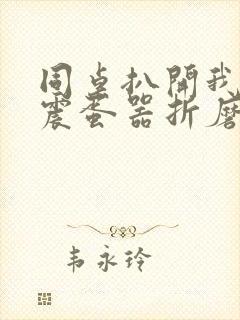 同桌扒開我
震蛋器折磨
韦永玲